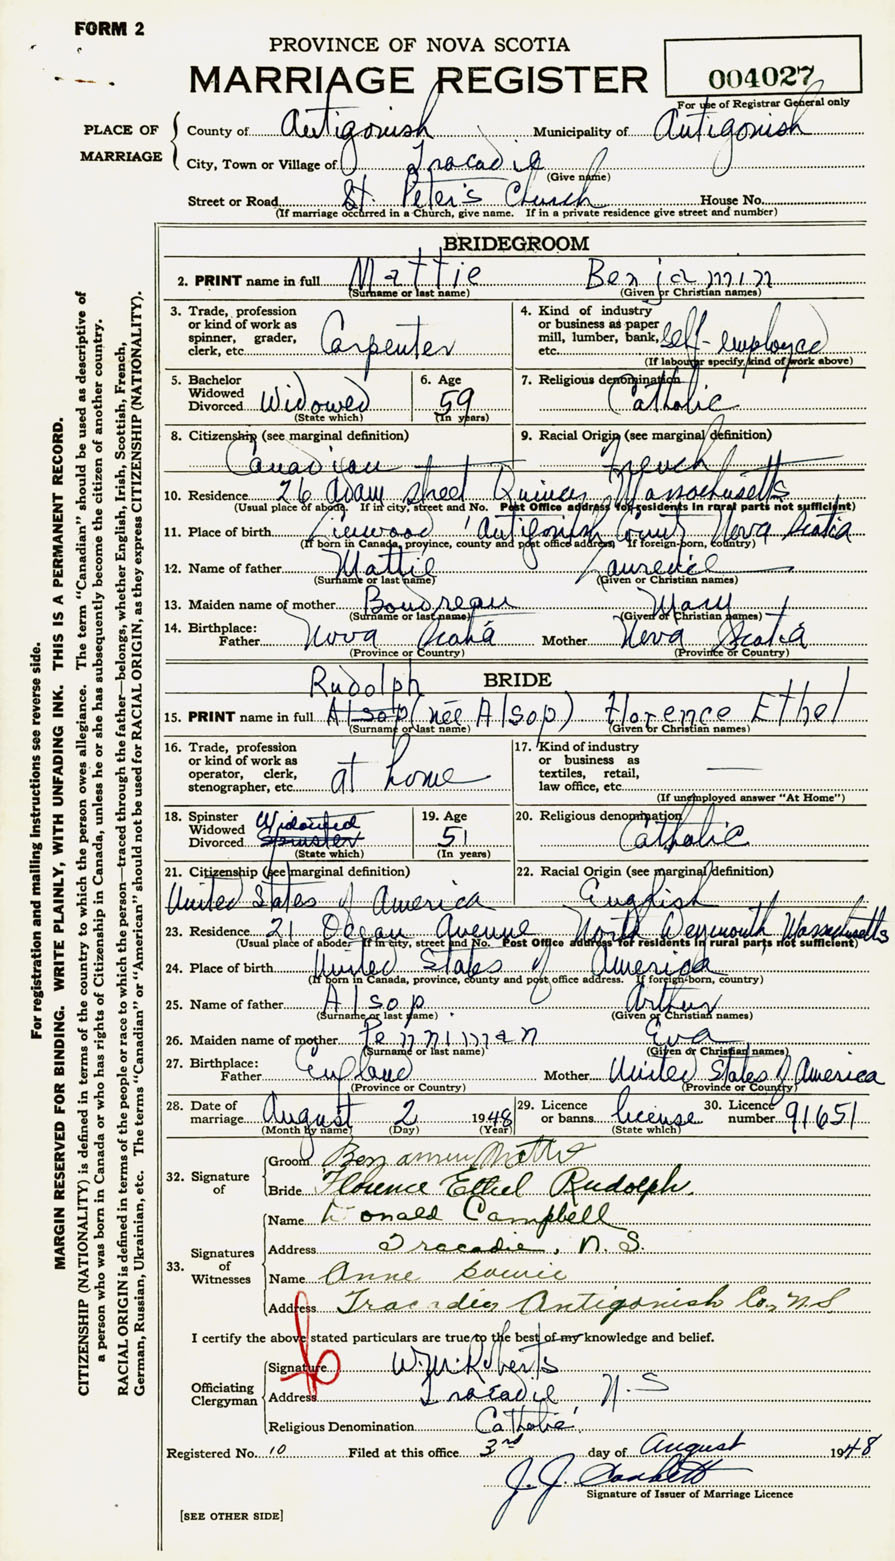 FORM 2
PROVINCE OF NOVA SCOTIA
MARRIAGE REGISTER
004027
For use of Registrar General only
PLACE OF MARRIAGE
County of Antigonish Municipality of Antigonish
City, Town or Village of Tracadie
(Give name)
Street or Road St. Peter's Church House No.
(If marriage occurred in a Church, give name. If in a private residence give street and number)
BRIDEGROOM
2. PRINT name in full Mattie Benjamin
(Surname or last name) (Given or Christian names)
3. Trade, profession or kind of work as spinner, grader, clerk, etc. Carpenter
4. Kind of industry or business as paper mill, lumber, bank, etc. self-employed
(If labourer specify, kind of work above)
5. Bachelor Widowed Divorced Widowed
(State which)
6. Age 59
(In years)
7. Religious denomination Catholic
8. Citizenship (see marginal definition) Canadian
9. Racial Origin (see marginal definition) French
10. Residence 26 Adam street Quincy Massachusetts
(Usual place of abode. If in city, street and No. Post Office address for residents in rural parts not sufficient)
11. Place of birth Linwood Antigonish County Nova Scotia
(If born in Canada, province, county and post office address. If foreign-born, country)
12. Name of father Mattie Laurence
(Surname or last name) (Given or Christian names)
13. Maiden name of mother Boudreau Mary
(Surname or last name) (Given or Christian names)
14. Birthplace: Father Nova Scotia Mother Nova Scotia
(Province or Country) (Province or Country)
BRIDE
Rudolph
15. PRINT name in full Alsop (née Alsop) Florence Ethel
(Surname or last name) (Given or Christian names)
16. Trade, profession or kind of work as operator, clerk, stenographer, etc. at home
17. Kind of industry or business as textiles, retail, law office, etc. —
(If unemployed answer "At Home")
18. Spinster Widowed Divorced Widowed Spinster
(State which)
19. Age 51
(In years)
20. Religious denomination Catholic
21. Citizenship (see marginal definition) United States of America
22. Racial Origin (see marginal definition) English
23. Residence 21 Ocean Avenue North Weymouth Massachusetts
(Usual place of abode. If in city, street and No. Post Office address for residents in rural parts not sufficient)
24. Place of birth United States of America
(If born in Canada, province, county and post office address. If foreign-born, country)
25. Name of father Alsop Arthur
(Surname or last name) (Given or Christian names)
26. Maiden name of mother Penniman Eva
(Surname or last name) (Given or Christian names)
27. Birthplace: Father England Mother United States of America
(Province or Country) (Province or Country)
28. Date of marriage August 2 1948
(Month by name) (Day) (Year)
29. Licence or banns license
(State which)
30. Licence number 91651
32. Signature of
Groom Benjamin Mattie
Bride Florence Ethel Rudolph.
33. Signatures of Witnesses
Name Donald Campbell
Address Tracadie, N.S.
Name Anne
Address Tracadie, Antigonish Co., N.S
I certify the above stated particulars are true to the best of my knowledge and belief.
Officiating Clergyman
Signature W. M. Roberts
Address Tracadie N.S
Religious Denomination Catholic
Registered No. 10 Filed at this office 3rd day of August 1948
J. J.
Signature of Issuer of Marriage Licence
[SEE OTHER SIDE]
For registration and mailing instructions see reverse side.
MARGIN RESERVED FOR BINDING. WRITE PLAINLY, WITH UNFADING INK. THIS IS A PERMANENT RECORD.
CITIZENSHIP (NATIONALITY) is defined in terms of the country to which the person owes allegiance. The term "Canadian" should be used as descriptive of
a person who was born in Canada or who has rights of Citizenship in Canada, unless he or she has subsequently become the citizen of another country.
RACIAL ORIGIN is defined in terms of the people or race to which the person—traced through the father—belongs, whether English, Irish, Scottish, French,
German, Russian, Ukrainian, etc. The terms "Canadian" or "American" should not be used for RACIAL ORIGIN, as they express CITIZENSHIP (NATIONALITY).